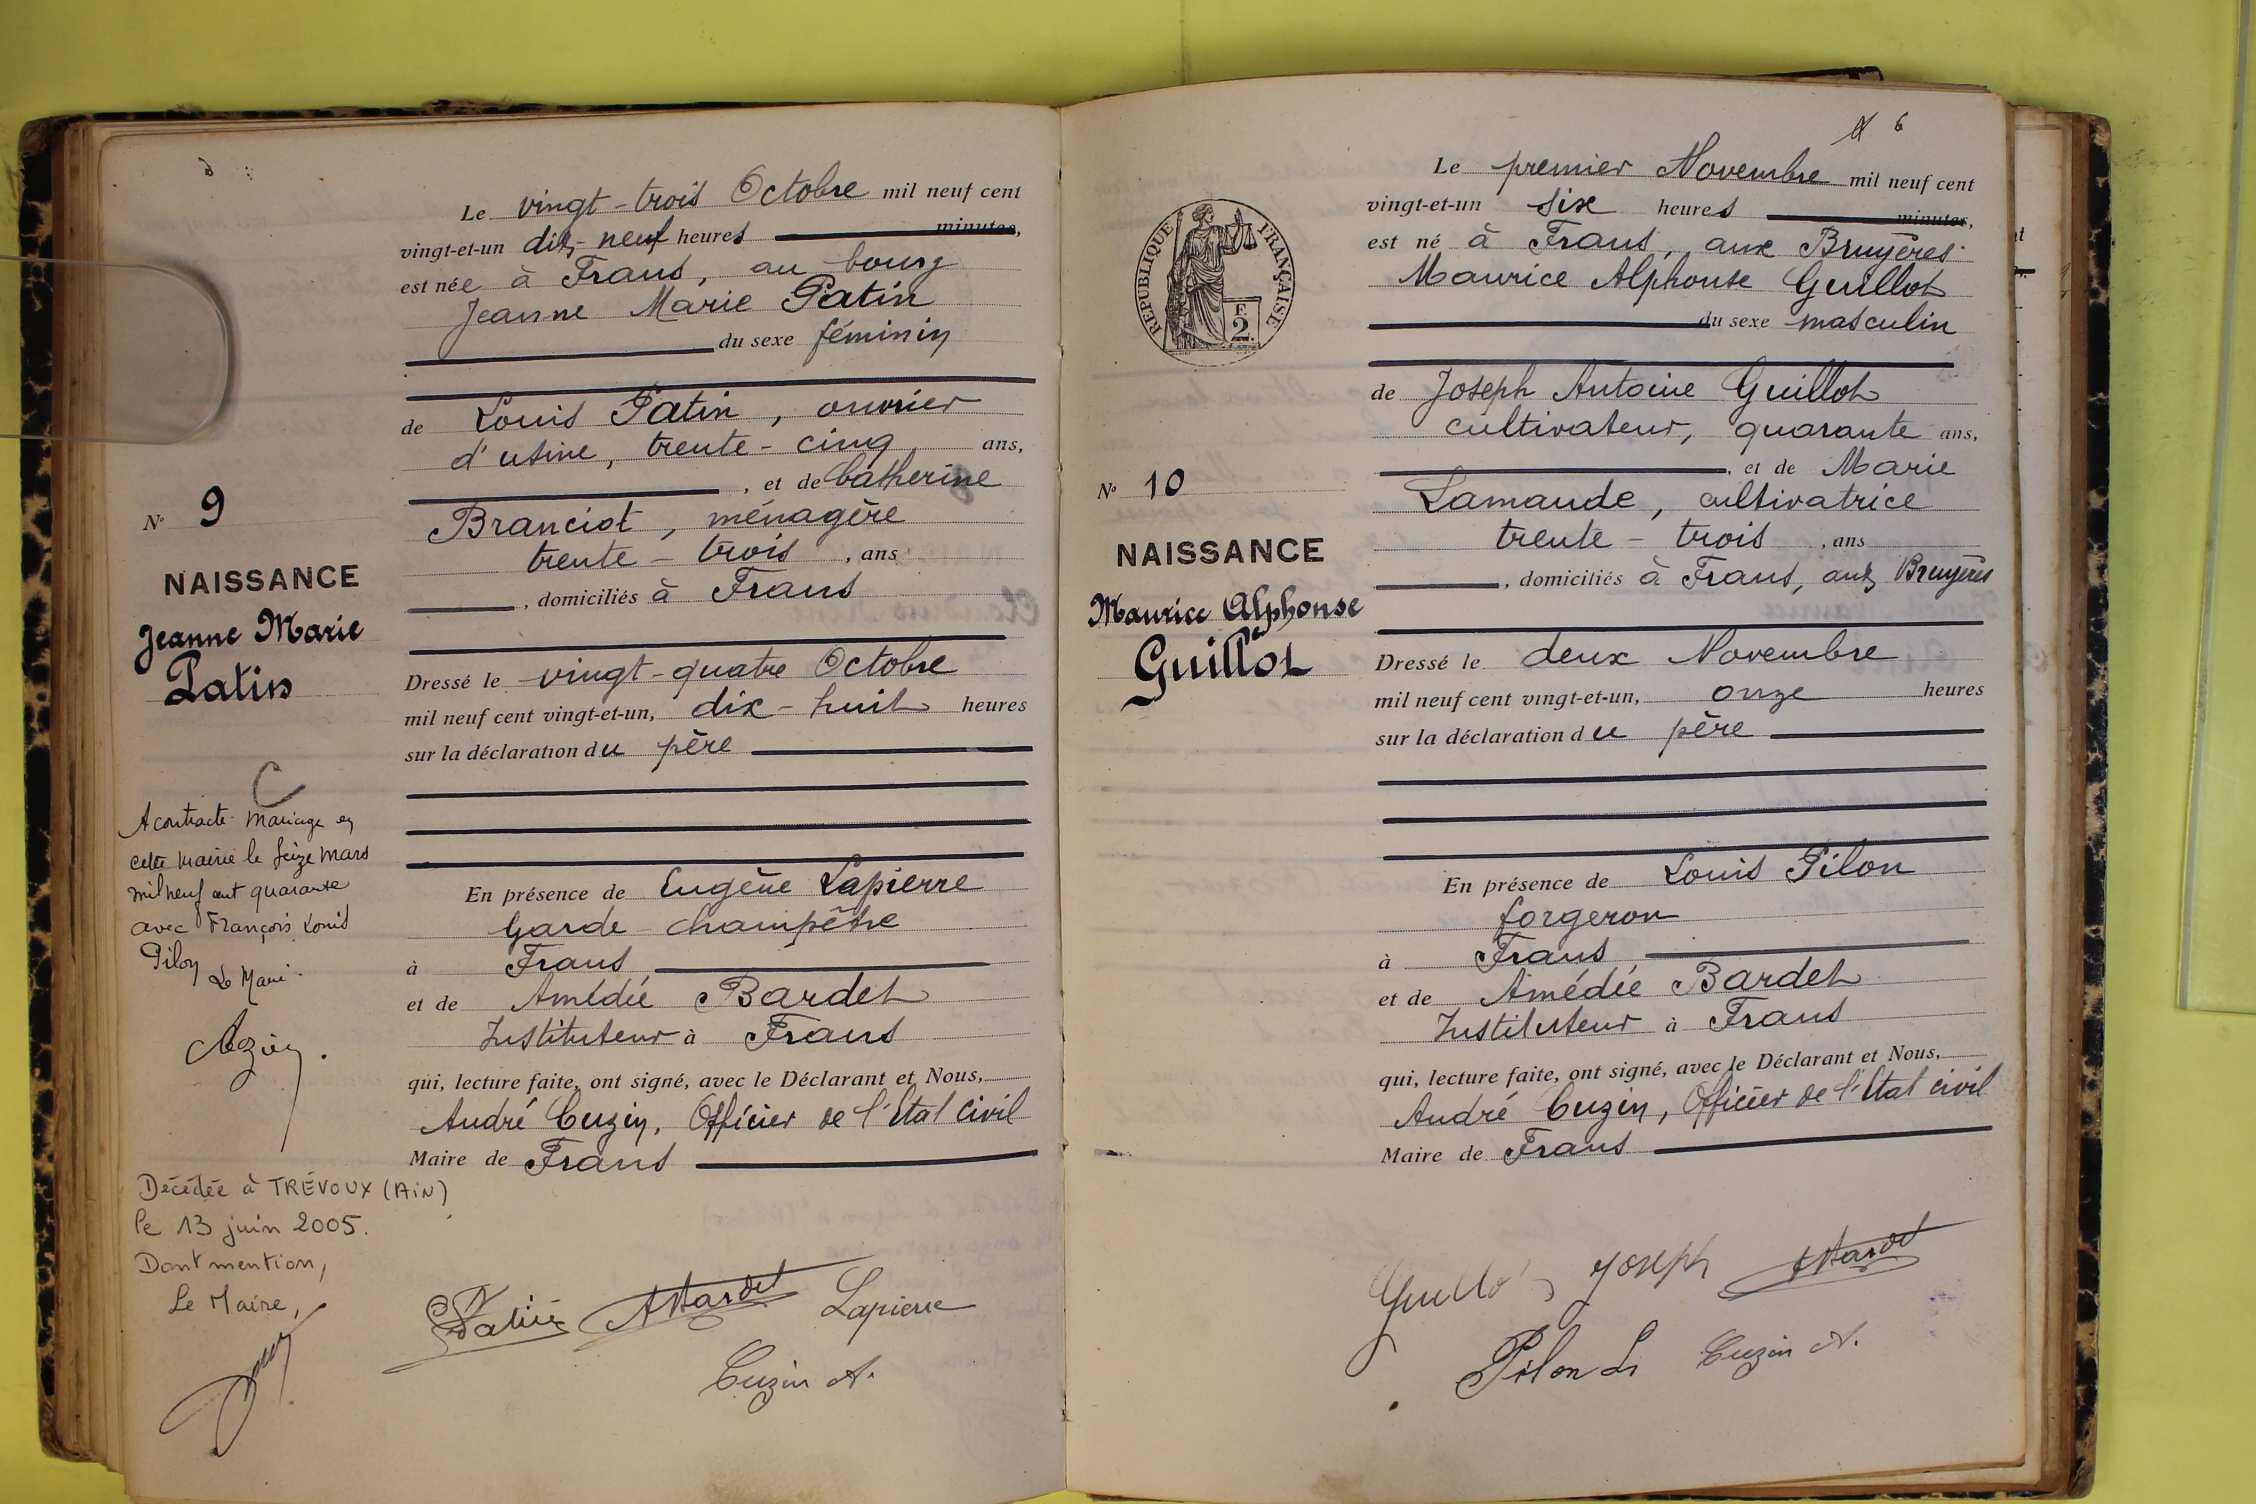 Le vingt-trois Octobre mil neuf cent
vingt-et-un dix-neuf heures minutes,
est née à Frans, au bourg
Jeanne Marie Patin
du sexe féminin
de Louis Patin, ouvrier
d'usine, trente-cinq ans,
, et de Catherine
Branciot, ménagère
trente-trois, ans
, domiciliés à Frans
Dressé le vingt-quatre Octobre
mil neuf cent vingt-et-un, dix-huit heures
sur la déclaration du père
En présence de Eugène Lapierre
Garde champêtre
à Frans
et de Amédée Bardet
Instituteur à Frans
qui, lecture faite, ont signé, avec le Déclarant et Nous,
André Cuzin, Officier de l'Etat Civil
Maire de Frans
Patin ABardet Lapierre
Cuzin A.
N° 9
NAISSANCE
Jeanne Marie
Patin
C
A contracté mariage en
cette mairie le seize mars
mil neuf cent quarante
avec François Louis
Pilon
Le Maire
Décédée à TRÉVOUX (AIN)
le 13 juin 2005.
Dont mention,
Le Maire,
6
Le premier Novembre mil neuf cent
vingt-et-un six heures minutes,
est né à Frans, aux Bruyères
Maurice Alphonse Guillot
du sexe masculin
de Joseph Antoine Guillot
cultivateur, quarante ans,
, et de Marie
Lamaude, cultivatrice
trente-trois, ans
, domiciliés à Frans, aux Bruyères
Dressé le deux Novembre
mil neuf cent vingt-et-un, onze heures
sur la déclaration du père
En présence de Louis Pilon
forgeron
à Frans
et de Amédée Bardet
Instituteur à Frans
qui, lecture faite, ont signé, avec le Déclarant et Nous,
André Cuzin, Officier de l'Etat Civil
Maire de Frans
Guillot Joseph ABardet
Pilon L Cuzin A.
RÉPUBLIQUE FRANÇAISE
F.
2.
N° 10
NAISSANCE
Maurice Alphonse
Guillot